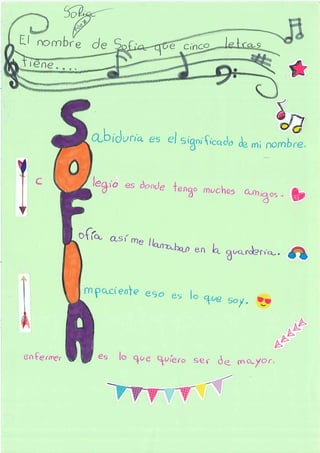 Sofia
El nombre de Sofia que cinco letras
tiene....
Sabiduria es el significado de mi nombre.
cOlegio es donde tengo muchos amigos.
Fofía así me llamaban en la guardería.
Impaciente eso es lo que soy.
enfermerA es lo que quiero ser de mayor.